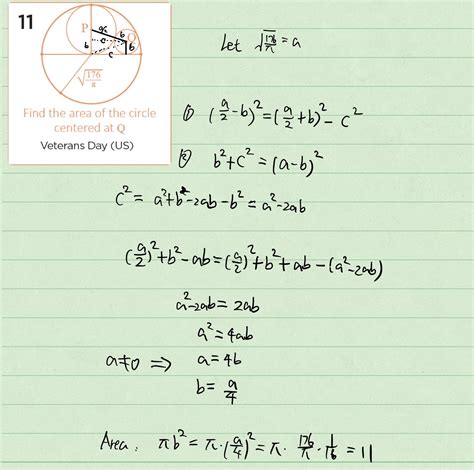 11
P
Q
x
b
b
c
b
c
√176/π
Find the area of the circle
centered at Q
Veterans Day (US)
Let √176/π = a
① (a/2 - b)² = (a/2 + b)² - c²
② b² + c² = (a - b)²
c² = a² + b² - 2ab - b² = a² - 2ab
(a/2)² + b² - ab = (a/2)² + b² + ab - (a² - 2ab)
a² - 2ab = 2ab
a² = 4ab
a ≠ 0 ⟹ a = 4b
b = a/4
Area: πb² = π · (a/4)² = π · 176/π · 1/16 = 11